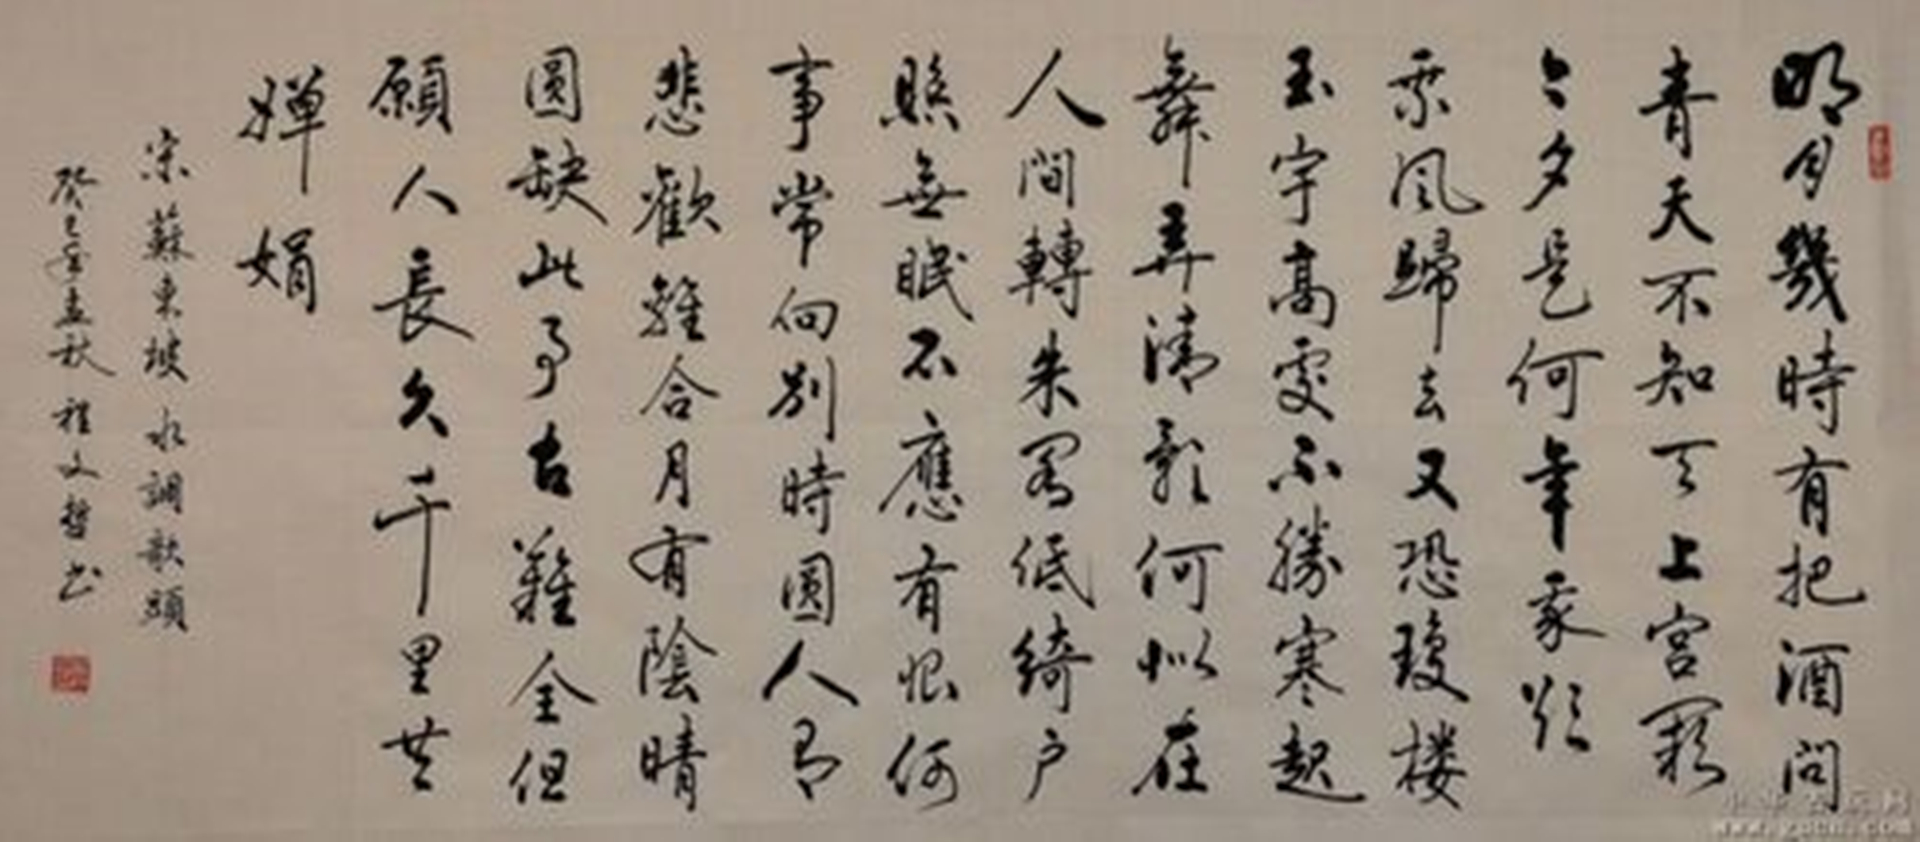 明月幾時有把酒問
青天不知天上宮闕
今夕是何年我欲
乘風歸去又恐瓊楼
玉宇高處不勝寒起
舞弄清影何似在
人間轉朱閣低綺户
照無眠不應有恨何
事常向別時圓人有
悲歡離合月有陰晴
圓缺此事古難全但
願人長久千里共
嬋娟
宋蘇東坡水調歌頭
癸巳年孟秋程文哲书